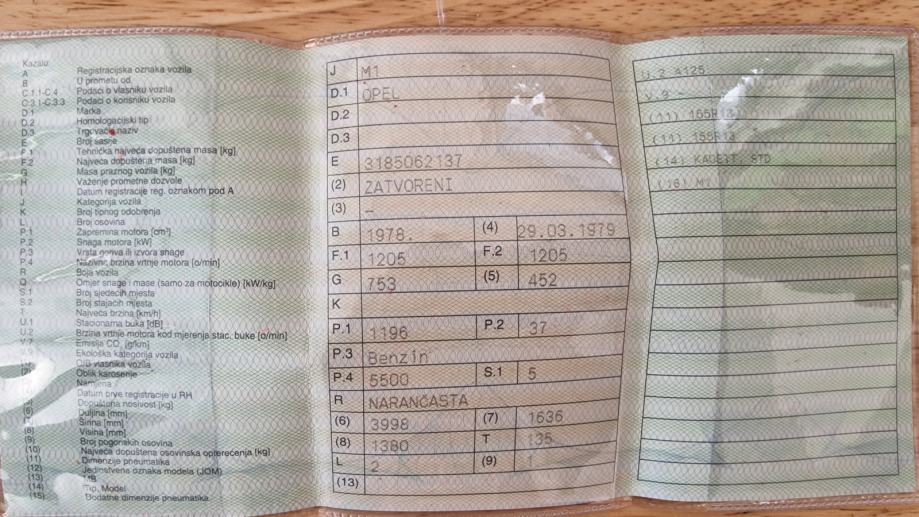 Kazalo:
A Registracijska oznaka vozila
B U prometu od
C.1.1-C.4 Podaci o vlasniku vozila
C.3.1-C.3.3 Podaci o korisniku vozila
D.1 Marka
D.2 Homologacijski tip
D.3 Trgovački naziv
E Broj šasije
F.1 Tehnička najveća dopuštena masa [kg]
F.2 Najveća dopuštena masa [kg]
G Masa praznog vozila [kg]
H Važenje prometne dozvole
I Datum registracije reg. oznakom pod A
J Kategorija vozila
K Broj tipnog odobrenja
L Broj osovina
P.1 Zapremina motora [cm³]
P.2 Snaga motora [kW]
P.3 Vrsta goriva ili izvora snage
P.4 Nazivna brzina vrtnje motora [o/min]
R Boja vozila
Q Omjer snage i mase (samo za motocikle) [kW/kg]
S.1 Broj sjedećih mjesta
S.2 Broj stajaćih mjesta
T Najveća brzina [km/h]
U.1 Stacionarna buka [dB]
U.2 Brzina vrtnje motora kod mjerenja stac. buke [o/min]
V.7 Emisija CO₂ [g/km]
V.9 Ekološka kategorija vozila
OIB vlasnika vozila
Oblik karoserije
Namjena
Datum prve registracije u RH
Dopuštena nosivost [kg]
(6) Duljina [mm]
(7) Širina [mm]
(8) Visina [mm]
(9) Broj pogonskih osovina
(10) Najveća dopuštena osovinska opterećenja [kg]
(11) Dimenzije pneumatika
(12) Jedinstvena oznaka modela (JOM)
(13)
(14) Tip, Model
(15) Dodatne dimenzije pneumatika
J M1
D.1 OPEL
D.2
D.3
E 3185062137
(2) ZATVORENI
(3) –
B 1978. (4) 29.03.1979
F.1 1205 F.2 1205
G 753 (5) 452
K
P.1 1196 P.2 37
P.3 Benzin
P.4 5500 S.1 5
R NARANČASTA
(6) 3998 (7) 1636
(8) 1380 T 135
L 2 (9) 1
(13)
U.2 A125
V.9 –
(11) 155R13
(11) 155R13
(14) KADETT, STD
(16)